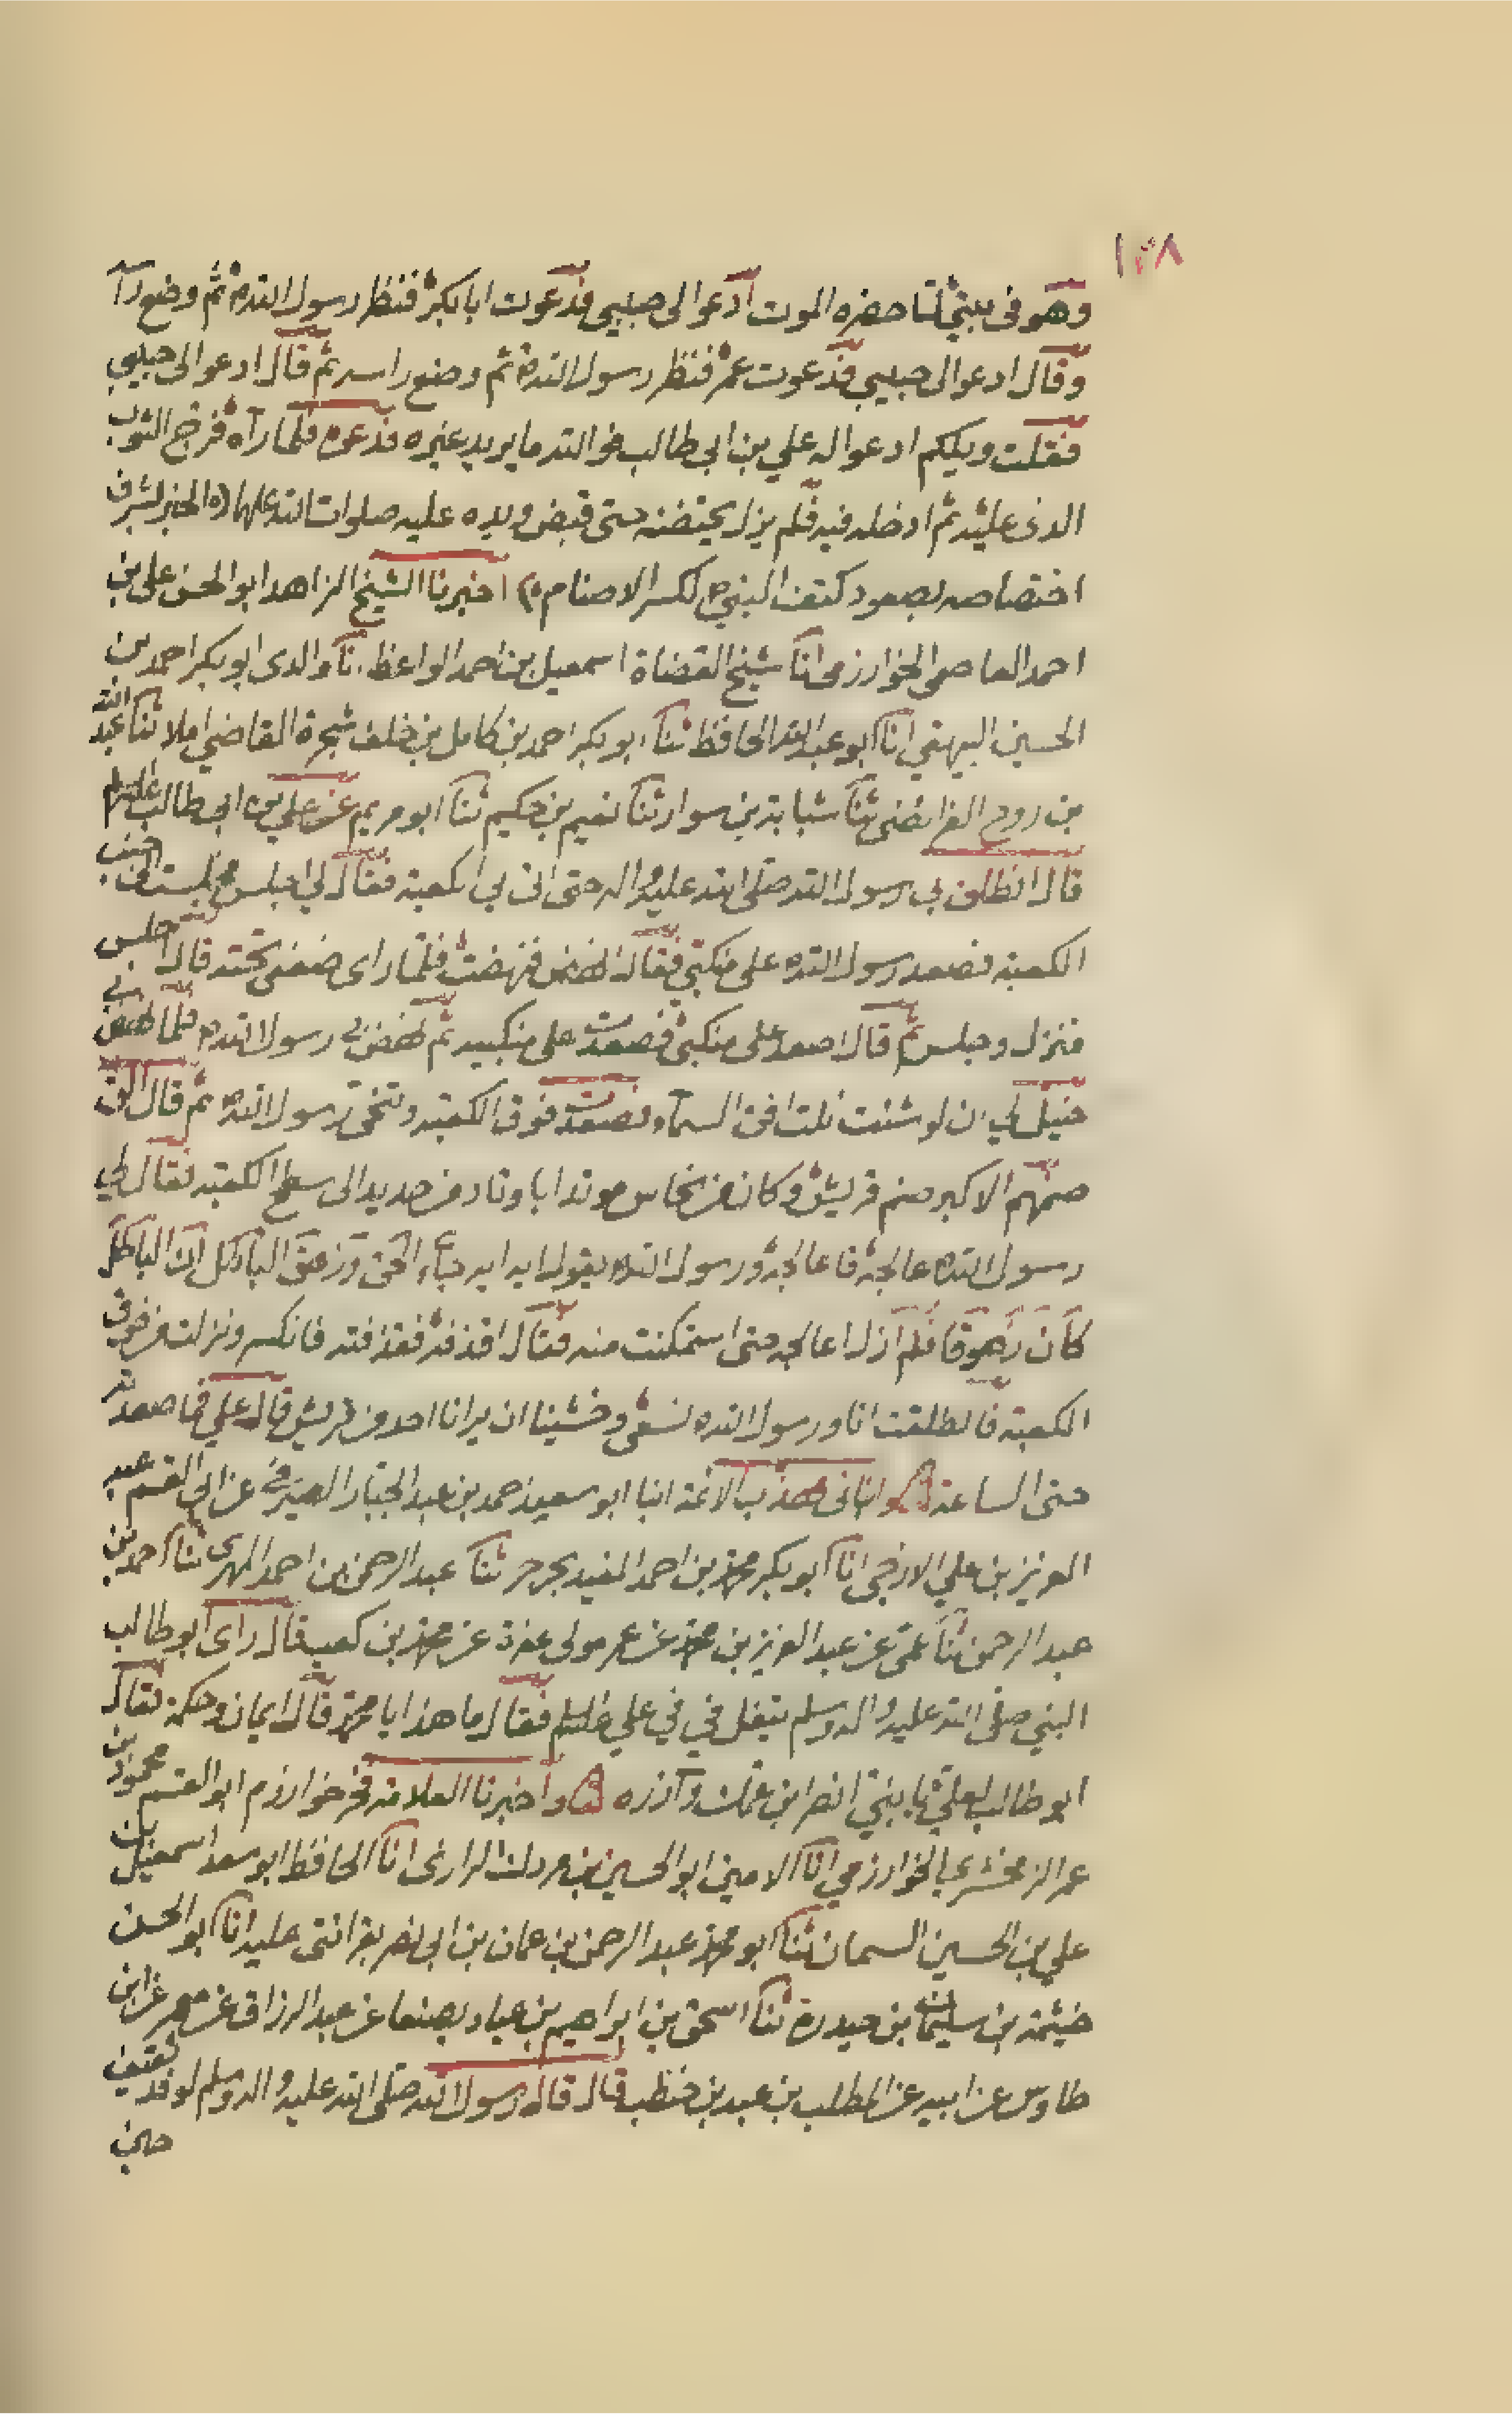 ١٣٨
وهو فى بيتي لما حضره الموت ادعوا لى حبيبى فدعوت ابا بكر فنظر رسول الله ثم وضع رأ
وقال ادعوا لى حبيبى فدعوت عمر فنظر رسول الله ثم وضع راسه ثم قال ادعوا لى حبيبي
فقلت ويلكم ادعوا له علي بن ابي طالب فوالله ما يريد غيره فدعوه فلما رآه فرج الثوب
الذى عليه ثم ادخله فيه فلم يزل يحتضنه حتى قبض ويده عليه صلوات الله عليها الخبر
اختصاصه بصعود كتف النبي لكسر الاصنام اخبرنا الشيخ الزاهد ابو الحسن على بن
احمد العاصمى الخوارزمى انا شيخ القضاة اسمعيل بن احمد الواعظ انا والدى ابو بكر احمد بن
الحسين البيهقي انا ابو عبد الله الحافظ ثنا ابو بكر احمد بن كامل بن خلف شجرة القاضي املا ثنا عبد الله
بن روح الفرائضى ثنا شبابة بن سوار ثنا نعيم بن حكيم ثنا ابو مريم عن علي بن ابي طالب عليه السلم
قال انطلق بي رسول الله صلى الله عليه واله حتى اتى بي الكعبة فقال لي اجلس فجلست الى جنب
الكعبة فصعد رسول الله على منكبي فقال انهض فنهضت فلما راى ضعفى تحته قال اجلس
فنزل وجلس ثم قال اصعد على منكبى فصعدت على منكبيه ثم نهض بي رسول الله فلما نهض بي
خيل لي ان لو شئت نلت افق السماء فصعدت فوق الكعبة وتنحى رسول الله ثم قال الق
صنمهم الاكبر صنم قريش وكان من نحاس موتدا باوتاد من حديد الى سطح الكعبة فقال لي
رسول الله عالجه فعالجته ورسول الله يقول ايه ايه جاء الحق وزهق الباطل ان الباطل
كان زهوقا فلم ازل اعالجه حتى استمكنت منه فقال اقذفه فقذفته فانكسر ونزلت من فوق
الكعبة فانطلقت انا ورسول الله نسعى وخشينا ان يرانا احد من قريش قال علي فما صعدته
حتى الساعة وانبانى مهذب الائمة انبا ابو سعيد احمد بن عبد الجبار الصيرفي عن ابي القسم عبد
العزيز بن علي الازجى انا ابو بكر محمد بن احمد المفيد ثنا عبد الرحمن بن احمد المهرى ثنا احمد بن
عبد الرحمن ثنا عمى عن عبد العزيز بن محمد عن عمر مولى عفرة عن محمد بن كعب قال راى ابو طالب
النبي صلى الله عليه واله وسلم يتفل في في علي عليه السلم فقال ما هذا يا محمد قال ايمان وحكمة فقال
ابو طالب لعلي يا بني انصر ابن عمك وآزره واخبرنا العلامة فخر خوارزم ابو القسم محمود بن
عمر الزمخشري الخوارزمي انا الامين ابو الحسين بن مردك الرازى انا الحافظ ابو سعد اسمعيل بن
علي بن الحسين السمان ثنا ابو محمد عبد الرحمن بن عمان بن ابي نصر بقرائتى عليه انا ابو الحسن
خيثمة بن سليمان بن حيدرة ثنا اسحق بن ابراهيم بن عباد بصنعا عن عبد الرزاق عن معمر عن ابن
طاوس عن ابيه عن المطلب بن عبد بن حنطب قال قال رسول الله صلى الله عليه واله وسلم لوفد ثقيف
حين